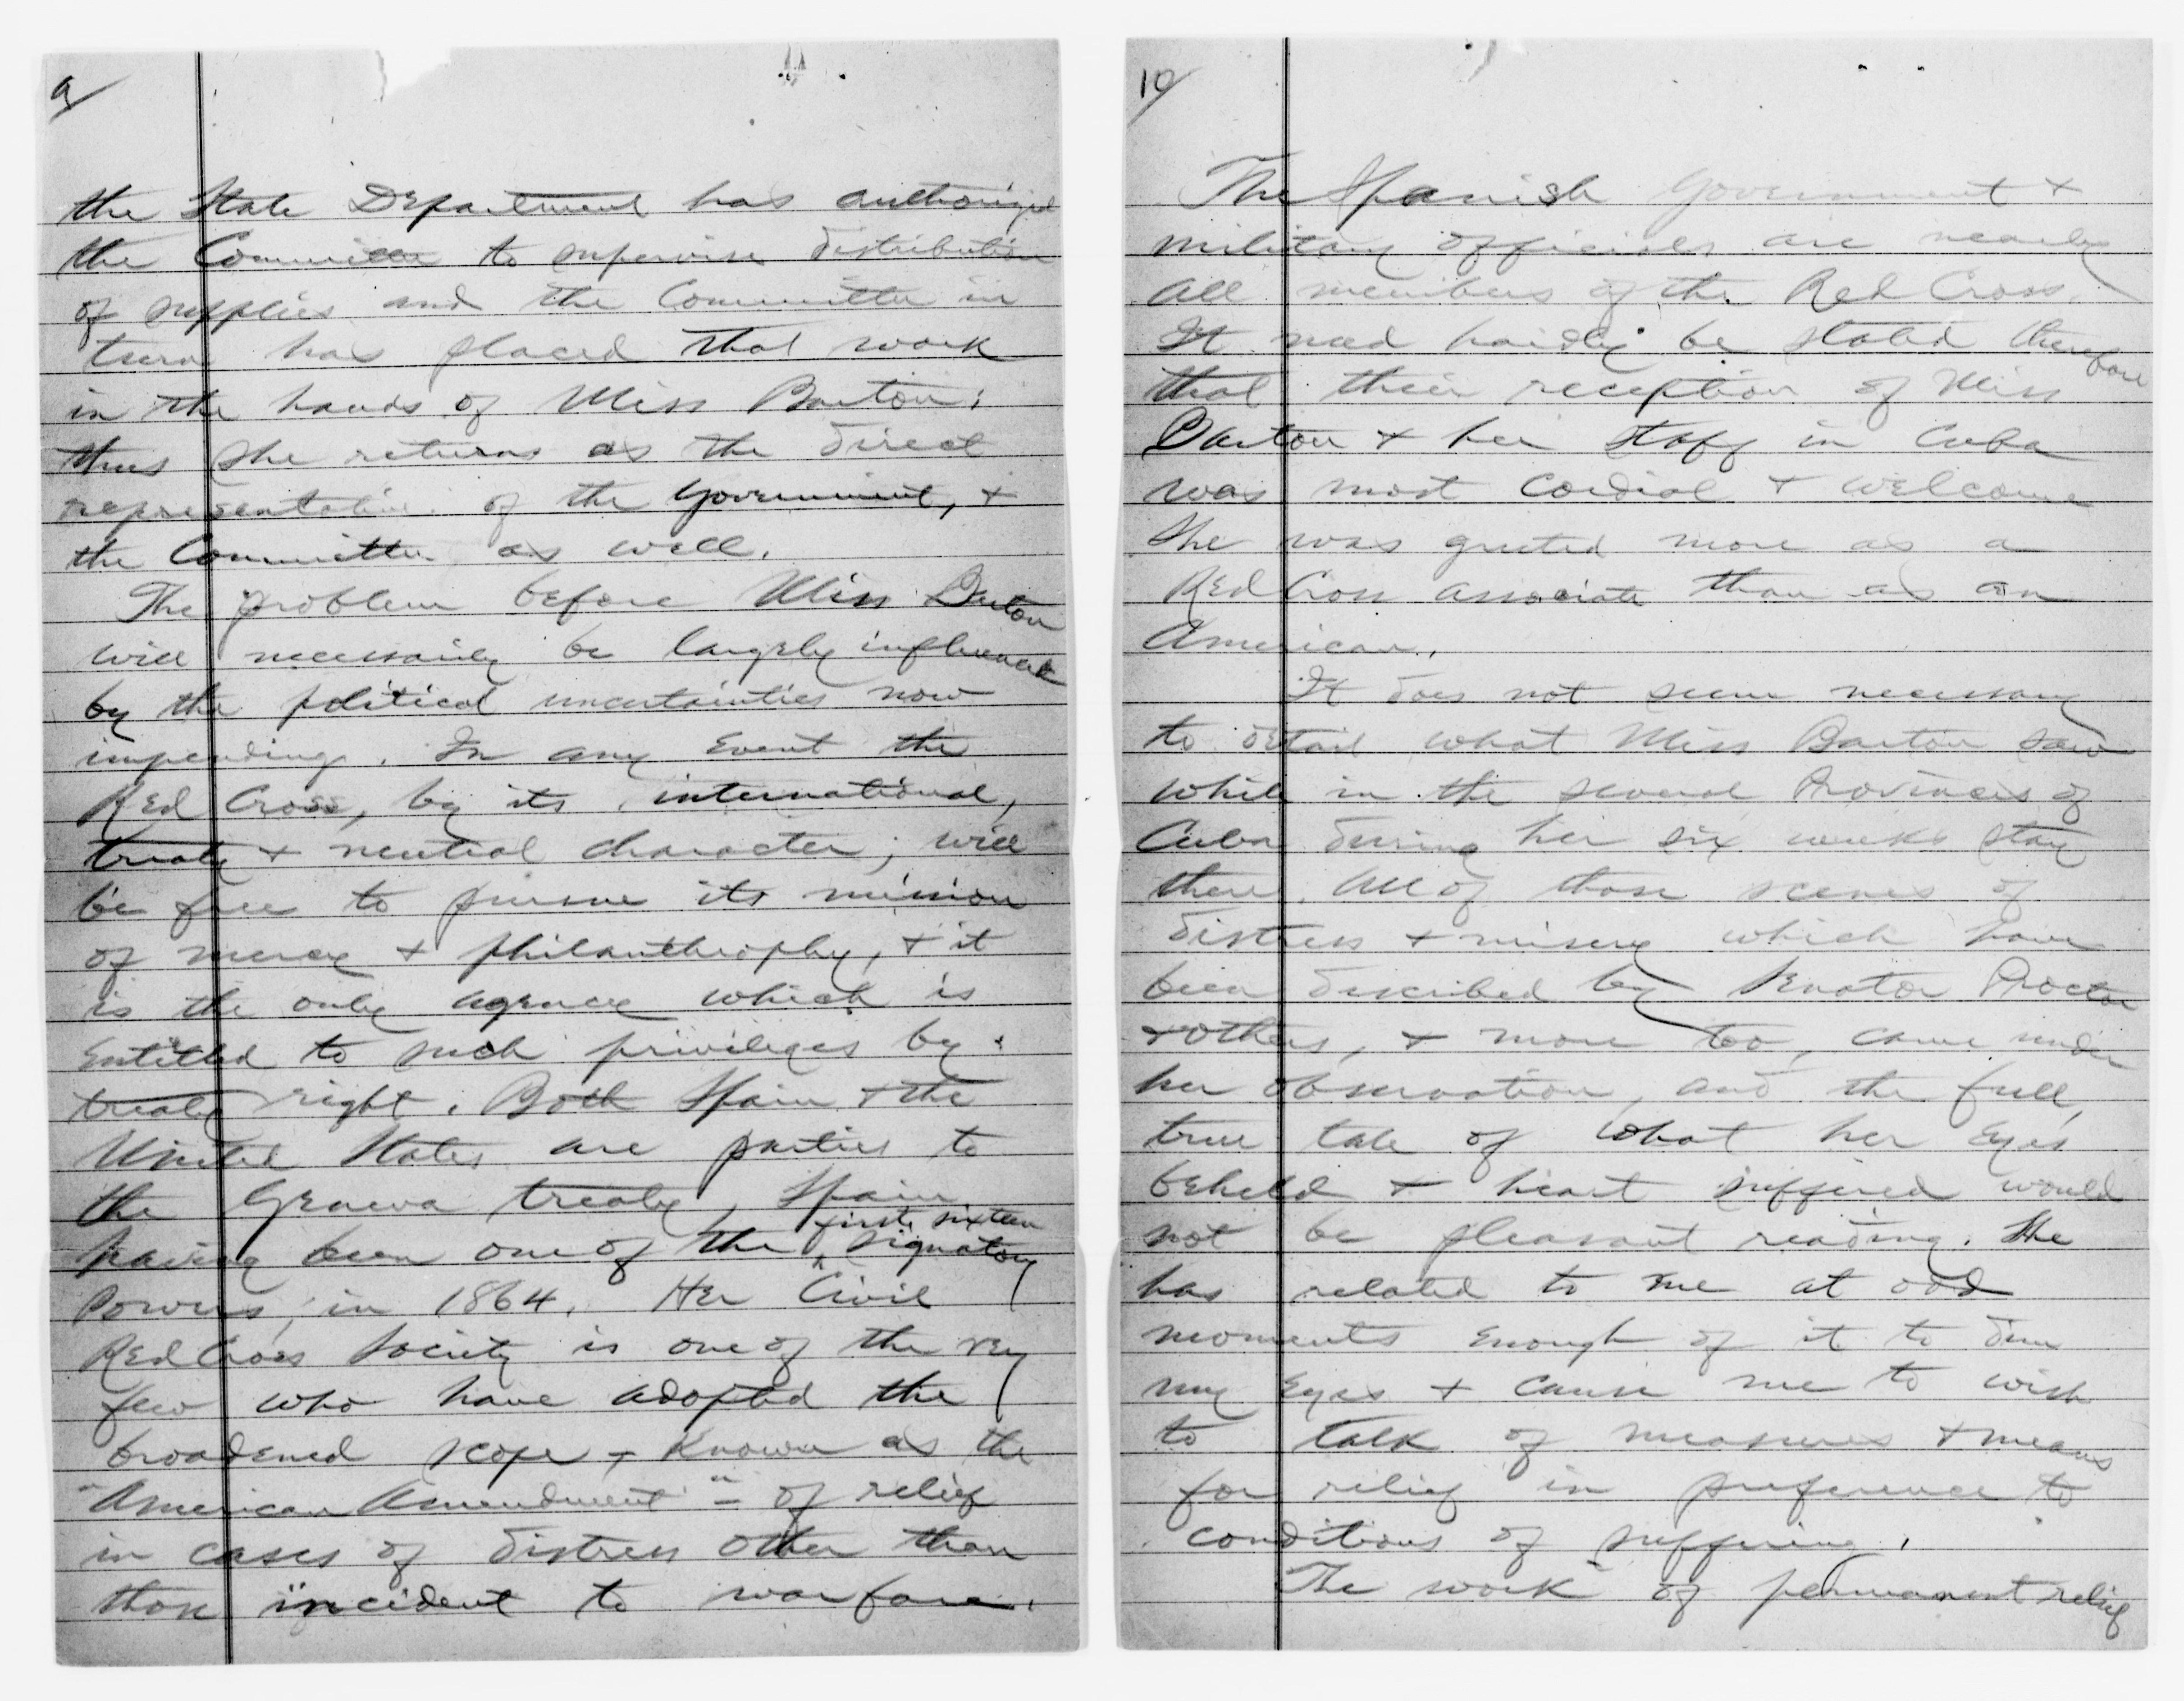 9/
the State Department has authorized
the Committee to supervise distribution
of supplies and the Committee in
turn has placed that work
in the hands of Miss Barton;
thus she returns as the direct
representative of the Government, +
the Committee as well.
The problem before Miss Barton
will necessarily be largely influenced
by the political uncertainties now
impending. In any Event the
Red Cross, by its international,
treaty + neutral character, will
be free to pursue its mission
of mercy + philanthrophy, + it
is the only agency which is
Entitled to such privileges by
treaty right. Both Spain + the
United States are parties to
the Geneva treaty, Spain
first sixteen
having been one of the ^ signatory
Powers, in 1864. Her Civil
Red Cross Society is one of the very
few who have adopted the
broadened scope - Known as the
"American Amendment" - of relief
in cases of distress other than
those incident to warfare.
10/
The Spanish Government +
military officials are nearly
all members of the Red Cross.
It need hardly be stated therefore
that their reception of Miss
Barton + her staff in Cuba
was most cordial + welcome
She was greeted more as a
Red Cross associate than as an
American.
It does not seem necessary
to detail what Miss Barton saw
while in the several Provinces of
Cuba during her six weeks stay
there. All of those scenes of
distress + misery which have
been described by Senator Proctor
+ others, + more too, came under
her observation, and the full,
true tale of what her Eyes
beheld + heart suffered would
not be pleasant reading. She
has related to me at odd
moments Enough of it to dim
my Eyes + cause me to wish
to talk of measures + means
for relief in preference to
conditions of suffering.
The work of permanent relief